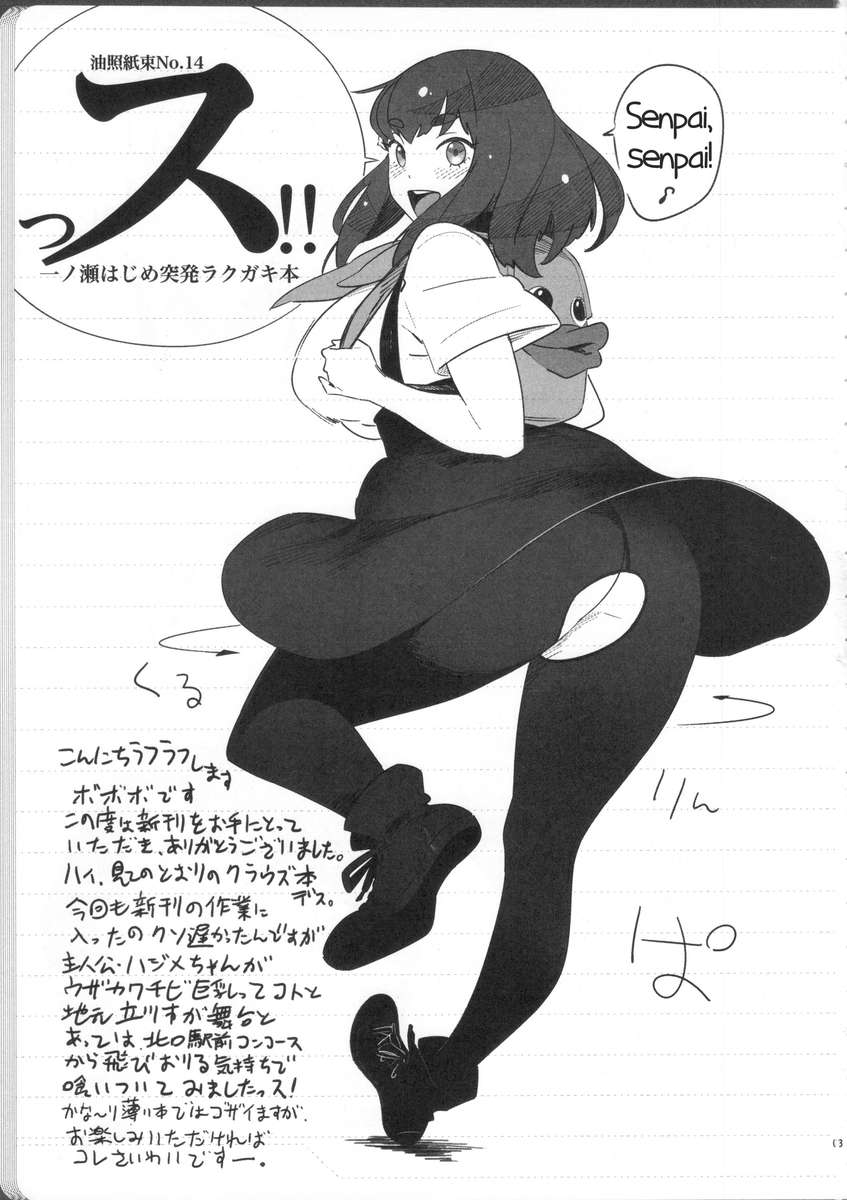 油照紙束No.14
スっ!!
一ノ瀬はじめ突発ラクガキ本
Senpai,
senpai!
♪
くる
りん
ぱ
こんにちラフラフします
ボボボです
この度は新刊をお手にとって
いただき、ありがとうございました。
ハイ、見てのとおりのクラウズ本デス。
今回も新刊の作業に
入ったのクソ遅かったんですが
主人公・ハジメちゃんが
ウザカワチビ巨乳ってコトと
地元立川すが舞台と
あっては、北口駅前コンコース
から飛びおりる気持ちで
喰いついてみましたっス!
かな〜り薄い本ではゴザイますが、
お楽しみいただければ
コレさいわいですー。
(3